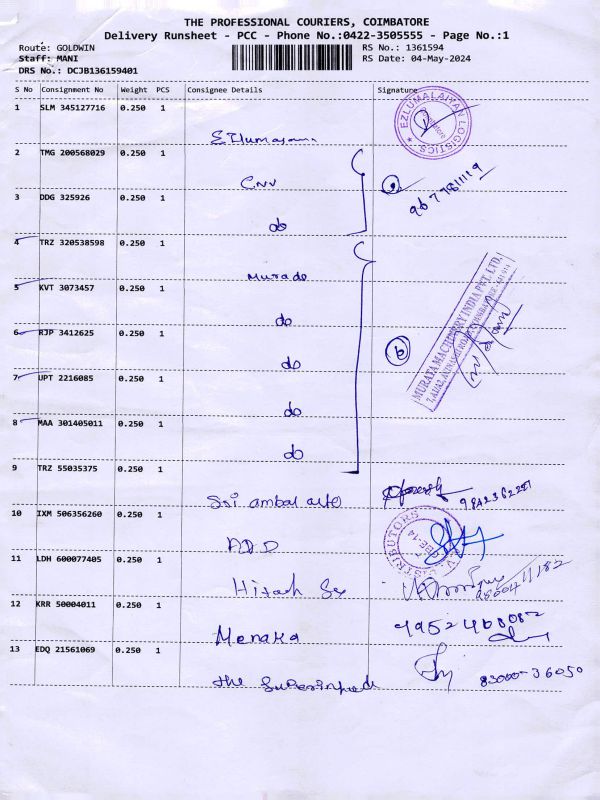 THE PROFESSIONAL COURIERS, COIMBATORE
Delivery Runsheet - PCC - Phone No.:0422-3505555 - Page No.:1
Route: GOLDWIN
Staff: MANI
DRS No.: DCJB136159401
RS No.: 1361594
RS Date: 04-May-2024
S No Consignment No Weight PCS Consignee Details Signature
1 SLM 345127716 0.250 1
EZLUMALAIYAN LOGISTICS
Coimbatore
2 TMG 200568029 0.250 1
CNV
3 DDG 325926 0.250 1
do
4 TRZ 320538598 0.250 1
Murade
5 KVT 3073457 0.250 1
do
6 RJP 3412625 0.250 1
do
b
MURATA MACHINERY INDIA PVT. LTD.
7 UPT 2216085 0.250 1
do
8 MAA 301405011 0.250 1
do
9 TRZ 55035375 0.250 1
Sri ambal auto
10 IXM 506356260 0.250 1
DISTRIBUTORS
CBE-14
11 LDH 600077405 0.250 1
Hitach
12 KRR 50004011 0.250 1
Menaka
9952468082
13 EDQ 21561069 0.250 1
the
83000-36050